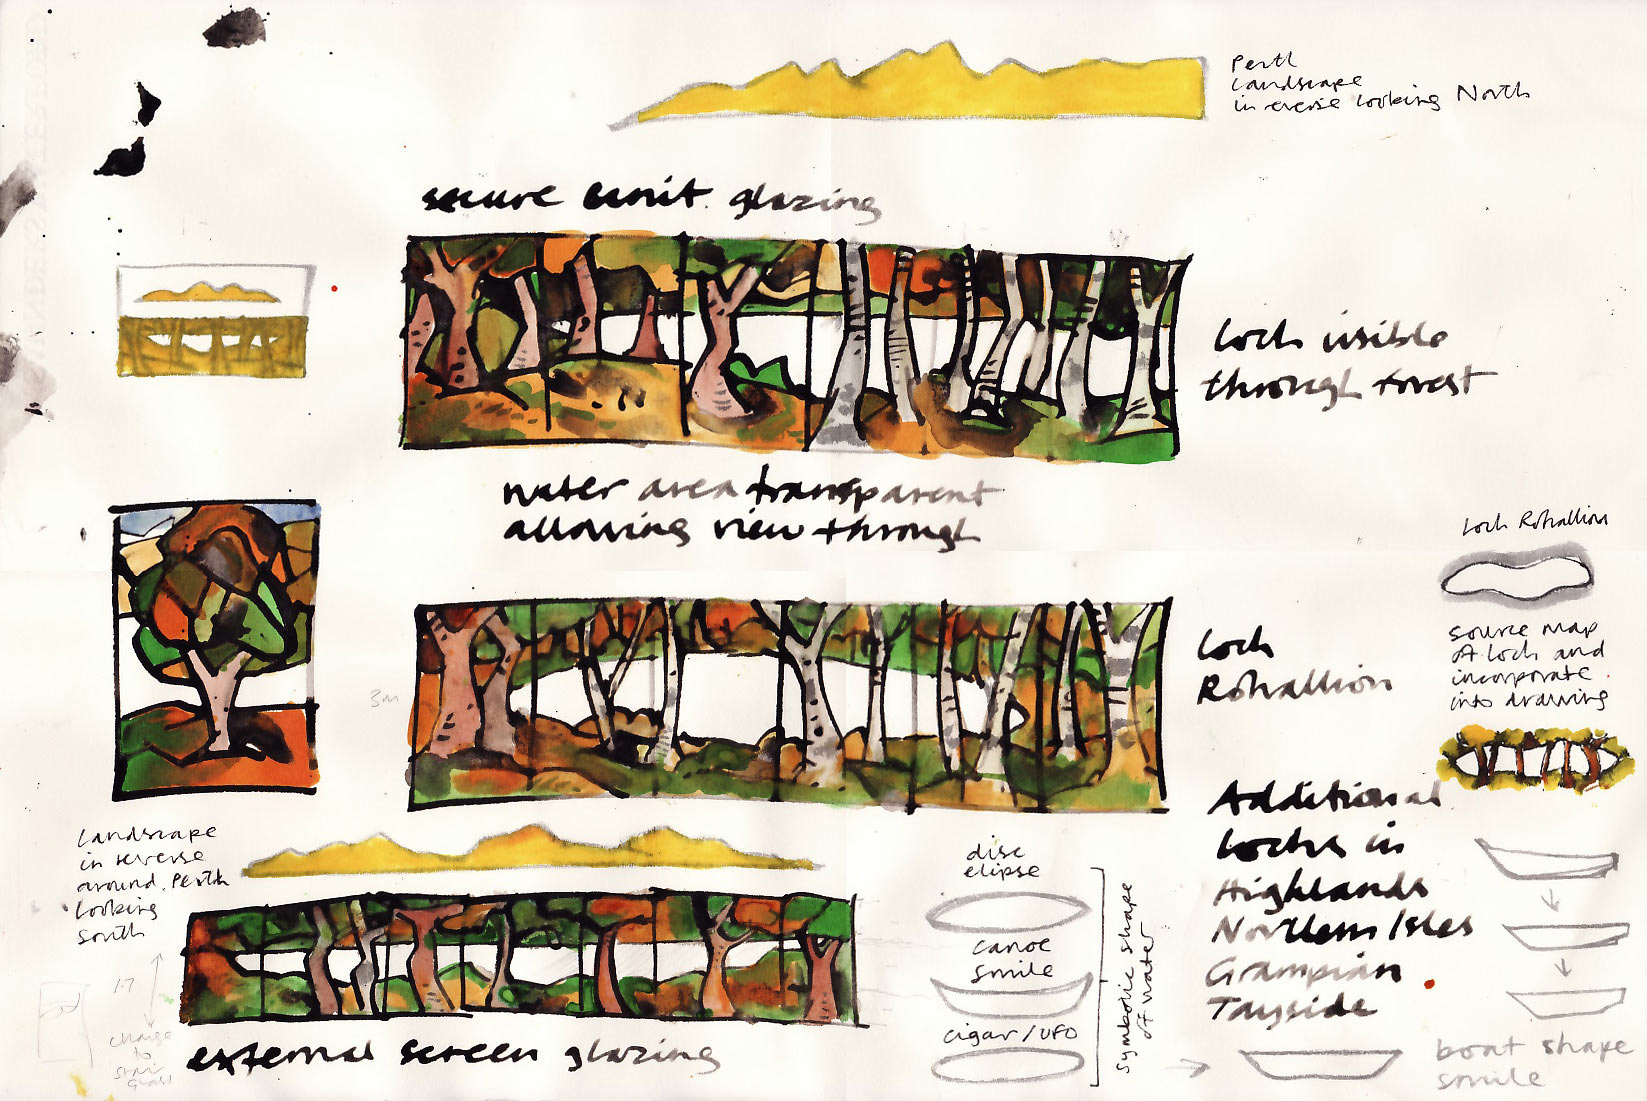 Perth
Landscape
in reverse looking North
secure
glazing
Loch visible
through forest
water area transparent
allowing view through
Loch Rohallion
source map
of Loch and
incorporate
into drawing
3m
Loch
Rohallion
Additional
Lochs in
Highlands
Northern Isles
Grampian
Tayside
Landscape
in reverse
around Perth
looking
South
1.7
change
to
stair
glass
external screen glazing
disc
elipse
canoe
smile
cigar/UFO
symbolic shape
of water
boat shape
smile